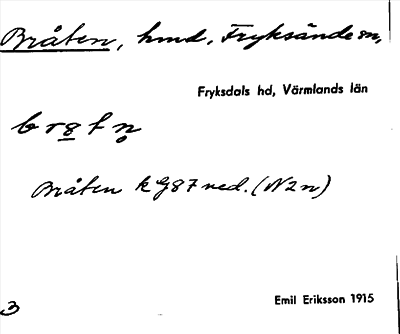 Bråten, hmd, Fryksände sn,
Fryksdals hd, Värmlands län
br8tn̥
Bråten k G87 ned. (N2n)
Emil Eriksson 1915
3